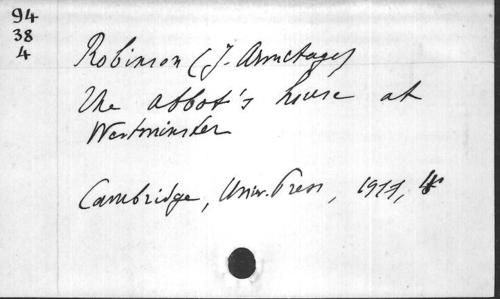 94
38
4
Robinson (J. Armitage)
The abbot's house at
Westminster
Cambridge, Univ. Press, 1911, 4°